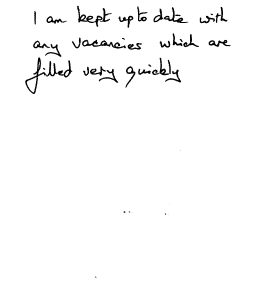 I am kept up to date with
any vacancies which are
filled very quickly